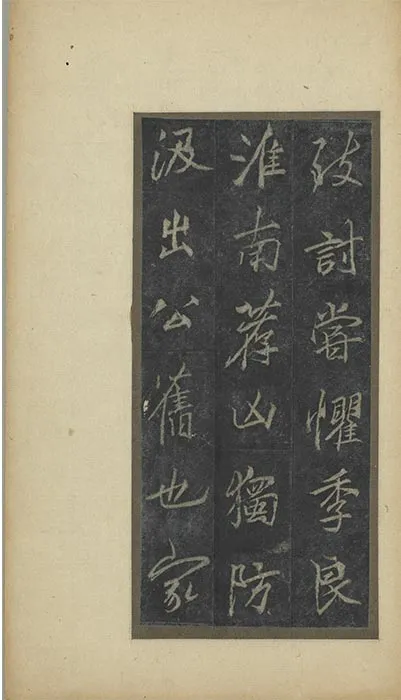 致討嘗懼季良
淮南荐凶獨防
汲出公舊也家